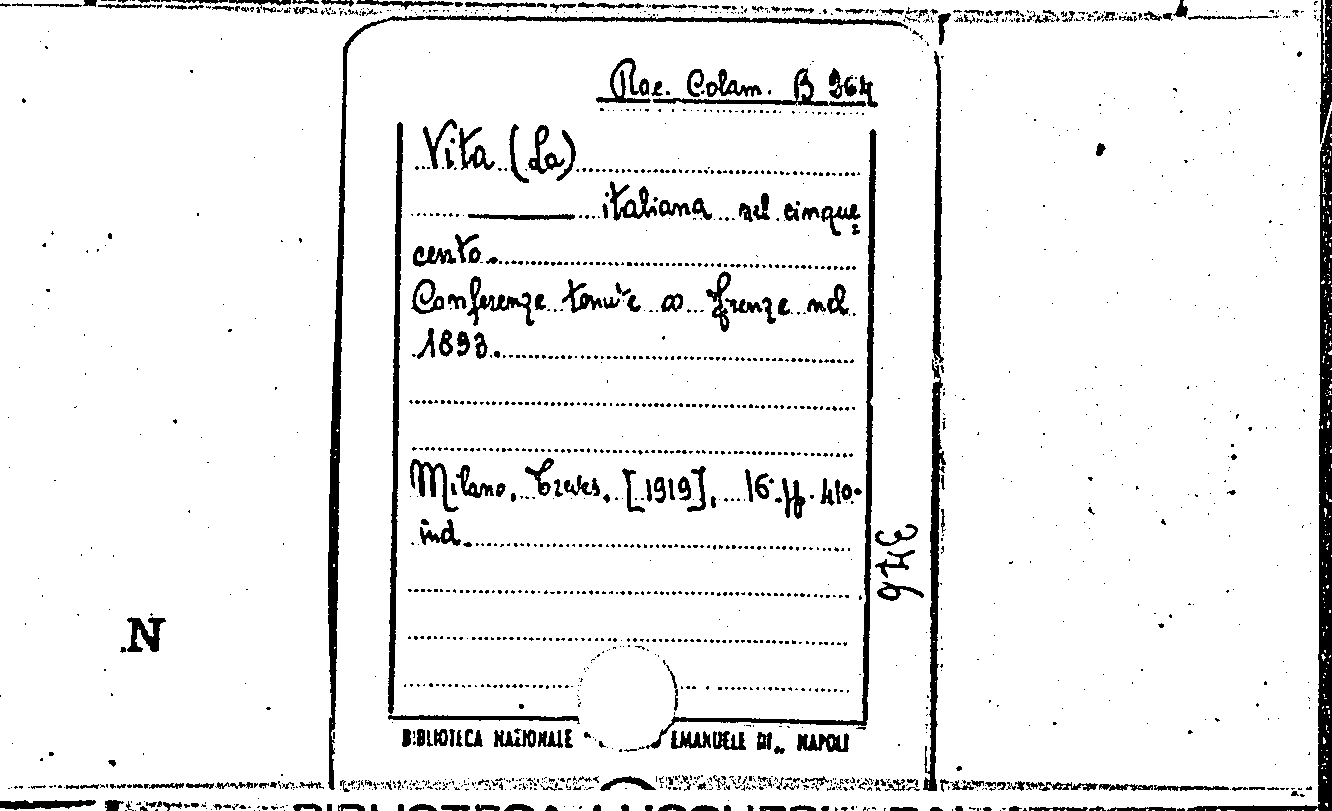 Rac. Colam. B 264
Vita (La)
italiana nel cinque=
cento.
Conferenze tenute a Firenze nel
1893.
Milano, Treves, [1919], 16. pp. 410.
ind.
346
N
BIBLIOTECA NAZIONALE EMANUELE III„ NAPOLI
BIBLIOTECA LUCCHESI